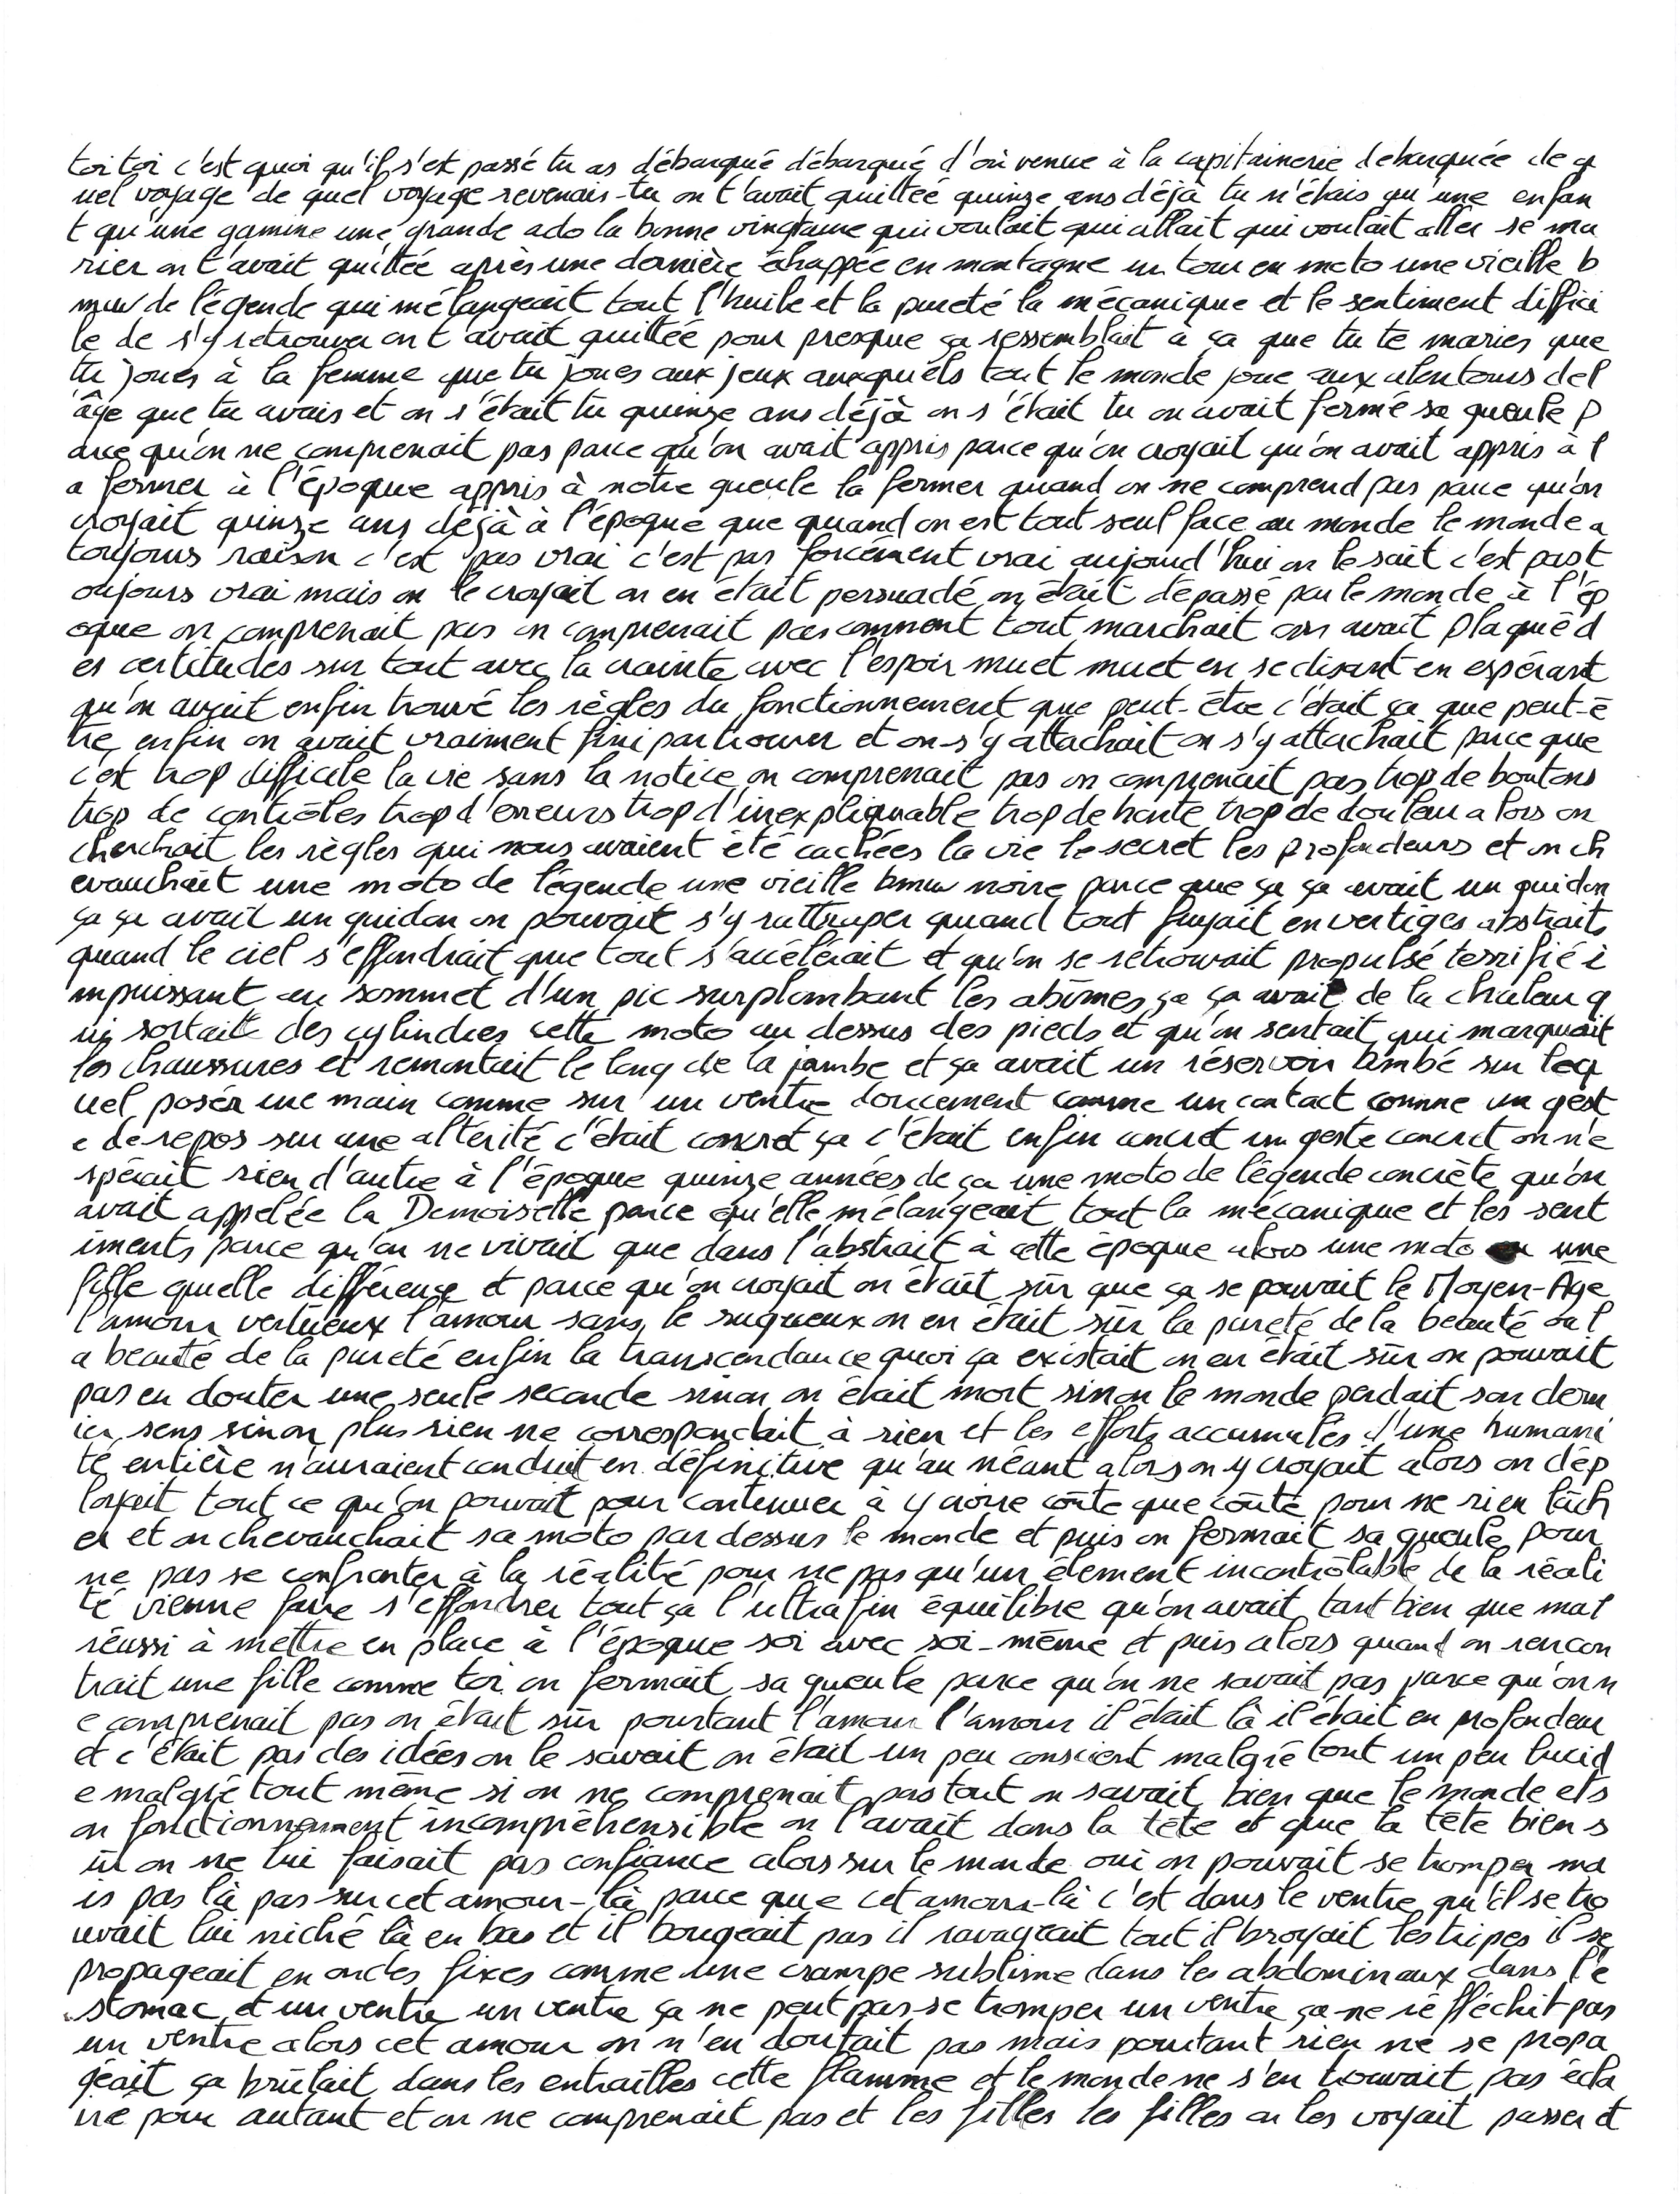 toi toi c'est quoi qu'il s'est passé tu as débarqué débarqué d'où venue à la capitainerie debarquée de q
uel voyage de quel voyage revenais-tu on t'avait quittée quinze ans déjà tu n'étais qu'une enfan
t qu'une gamine une grande ado la bonne vingtaine qui voulait qui allait qui voulait aller se ma
rier on t'avait quittée après une dernière échappée en montagne un tour en moto une vieille b
mw de légende qui mélangeait tout l'huile et la pureté la mécanique et le sentiment diffici
le de s'y retrouver on t'avait quittée pour presque ça ressemblait à ça que tu te maries que
tu joues à la femme que tu joues aux jeux auxquels tout le monde joue aux alentours de l
'âge que tu avais et on s'était tu quinze ans déjà on s'était tu on avait fermé sa gueule p
arce qu'on ne comprenait pas parce qu'on avait appris parce qu'on croyait qu'on avait appris à l
a fermer à l'époque appris à notre gueule la fermer quand on ne comprend pas parce qu'on
croyait quinze ans déjà à l'époque que quand on est tout seul face au monde le monde a
toujours raison c'est pas vrai c'est pas forcément vrai aujourd'hui on le sait c'est pas t
oujours vrai mais on le croyait on en était persuadé on était dépassé par le monde à l'ép
oque on comprenait pas on comprenait pas comment tout marchait on avait plaqué d
es certitudes sur tout avec la crainte avec l'espoir muet muet en se disant en espérant
qu'on avait enfin trouvé les règles du fonctionnement que peut-être c'était ça que peut-ê
tre enfin on avait vraiment fini par trouver et on s'y attachait on s'y attachait parce que
c'est trop difficile la vie sans la notice on comprenait pas on comprenait pas trop de boutons
trop de contrôles trop d'erreurs trop d'inexpliquable trop de honte trop de douleur alors on
cherchait les règles qui nous avaient été cachées la vie le secret les profondeurs et on ch
evauchait une moto de légende une vieille bmw noire parce que ça ça avait un guidon
ça ça avait un guidon on pouvait s'y rattraper quand tout fuyait en vertiges abstraits
quand le ciel s'effondrait que tout s'accélérait et qu'on se retrouvait propulsé terrifié i
mpuissant au sommet d'un pic surplombant les abîmes ça ça avait de la chaleur q
ui sortait des cylindres cette moto au dessus des pieds et qu'on sentait qui marquait
les chaussures et remontait le long de la jambe et ça avait un réservoir bombé sur leq
uel poser une main comme sur un ventre doucement comme un contact comme un gest
e de repos sur une altérité c'était concret ça c'était enfin concret un geste concret on n'e
spérait rien d'autre à l'époque quinze années de ça une moto de légende concrète qu'on
avait appelée la Demoiselle parce qu'elle mélangeait tout la mécanique et les sent
iments parce qu'on ne vivait que dans l'abstrait à cette époque alors une moto une
fille quelle différence et parce qu'on croyait on était sûr que ça se pouvait le Moyen-Age
l'amour vertueux l'amour sans le rugueux on en était sûr la pureté de la beauté ou l
a beauté de la pureté enfin la transcendance quoi ça existait on en était sûr on pouvait
pas en douter une seule seconde sinon on était mort sinon le monde perdait son dern
ier sens sinon plus rien ne correspondait à rien et les efforts accumulés d'une humani
té entière n'auraient conduit en définitive qu'au néant alors on y croyait alors on dép
loyait tout ce qu'on pouvait pour continuer à y croire coûte que coûte pour ne rien lâch
er et on chevauchait sa moto par dessus le monde et puis on fermait sa gueule pour
ne pas se confronter à la réalité pour ne pas qu'un élément incontrôlable de la réali
té vienne faire s'effondrer tout ça l'ultrafin équilibre qu'on avait tant bien que mal
réussi à mettre en place à l'époque soi avec soi-même et puis alors quand on rencon
trait une fille comme toi on fermait sa gueule parce qu'on ne savait pas parce qu'on n
e comprenait pas on était sûr pourtant l'amour l'amour il était là il était en profondeur
et c'était pas des idées on le savait on était un peu conscient malgré tout un peu lucid
e malgré tout même si on ne comprenait pas tout on savait bien que le monde et s
on fonctionnement incompréhensible on l'avait dans la tête et que la tête bien s
ûr on ne lui faisait pas confiance alors sur le monde oui on pouvait se tromper ma
is pas là pas sur cet amour-là parce que cet amour-là c'est dans le ventre qu'il se tro
uvait lui niché là en bas et il bougeait pas il ravageait tout il broyait les tripes il se
propageait en ondes fixes comme une crampe sublime dans les abdominaux dans l'e
stomac et un ventre un ventre ça ne peut pas se tromper un ventre ça ne réfléchit pas
un ventre alors cet amour on n'en doutait pas mais pourtant rien ne se propa
geait ça brûlait dans les entrailles cette flamme et le monde ne s'en trouvait pas écla
iré pour autant et on ne comprenait pas et les filles les filles on les voyait passer et